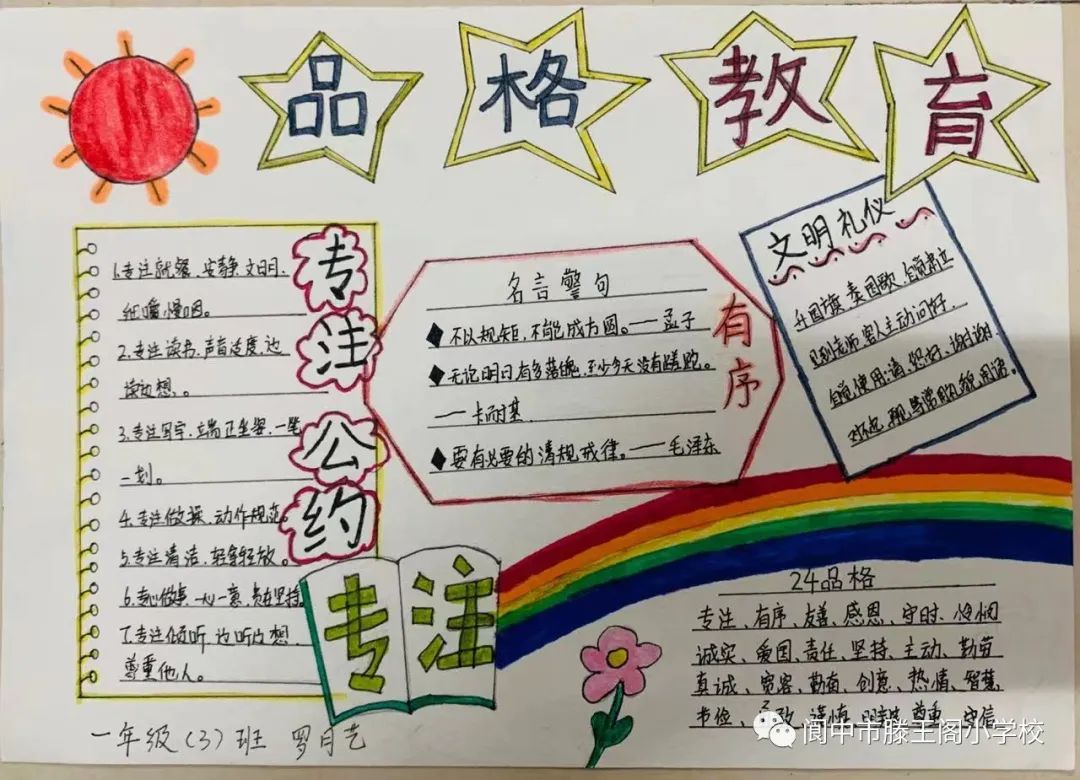 品格教育
专注公约
1.专注就餐、安静文明、
细嚼慢咽。
2.专注读书,声音适度,边
读边想。
3.专注写字,端正坐姿,一笔
一划。
4.专注做操,动作规范。
5.专注清洁,轻拿轻放。
6.专心做事,一心一意,贵在坚持。
7.专注倾听,边听边想,
尊重他人。
专注
一年级(3)班 罗月艺
名言警句
不以规矩,不能成方圆。——孟子
无论明日有多落魄,至少今天没有蹉跎。
——卡耐基
要有必要的清规戒律。——毛泽东
有序
文明礼仪
升国旗,奏国歌,自觉肃立
见到老师客人主动问好.
自觉使用:请、您好、谢谢、
对不起、再见等常用礼貌用语。
24品格
专注、有序、友善、感恩、守时、
诚实、爱国、责任、坚持、主动、勤劳
真诚、宽容、勤奋、创意、热情、智慧
节俭、尊重、守信
阆中市滕王阁小学校